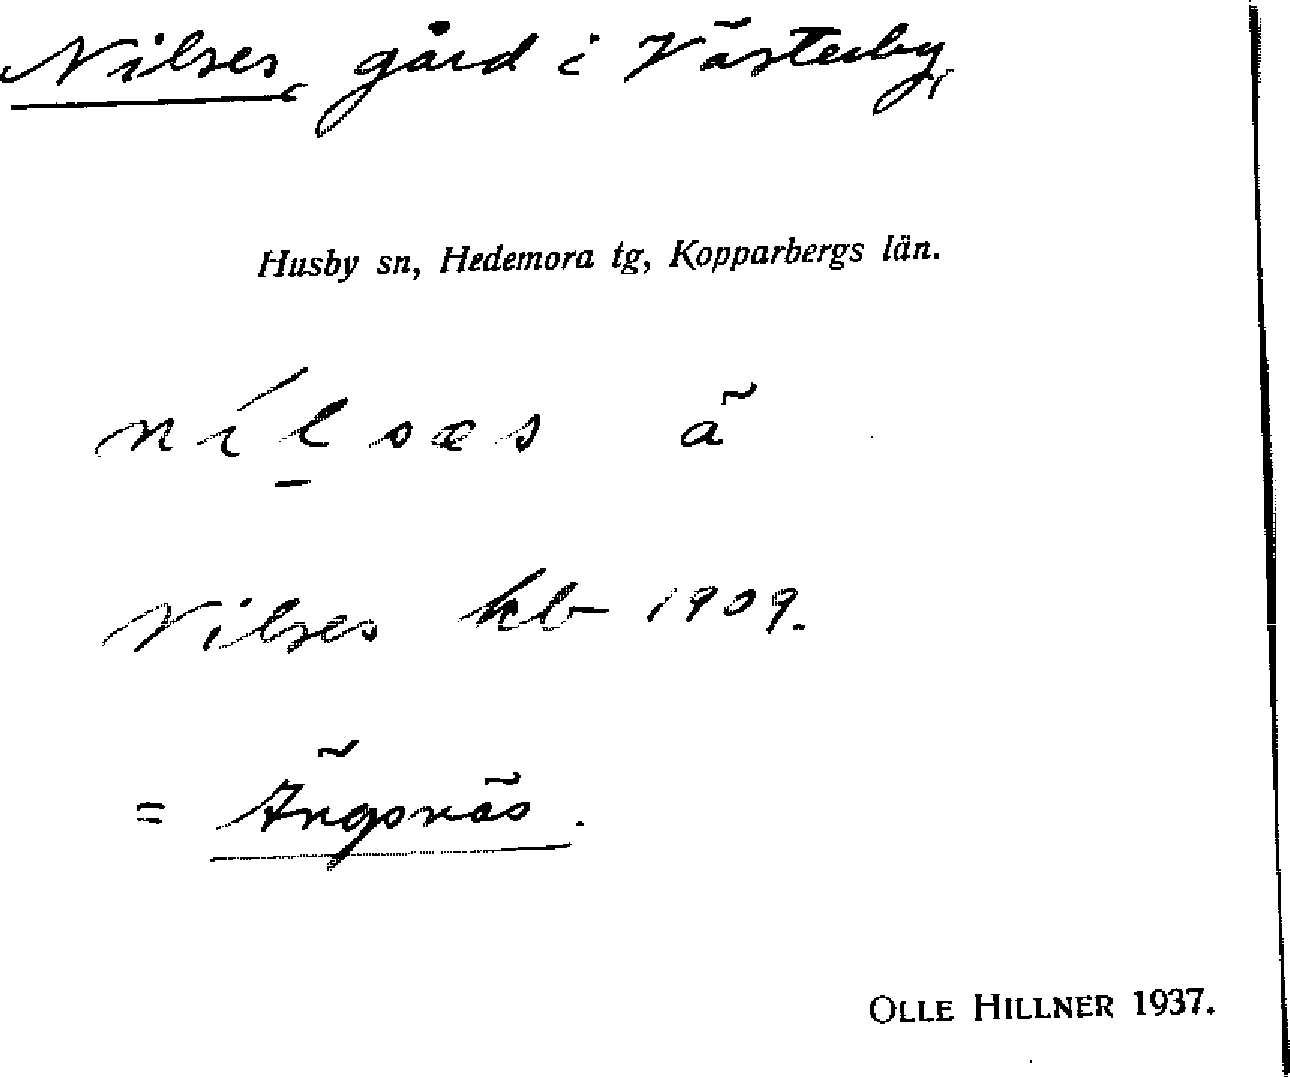 Nilses, gård i Västerby,
Husby sn, Hedemora tg, Kopparbergs län.
nílsæs ã
Nilses kb 1909.
= Ängsnäs.
OLLE HILLNER 1937.